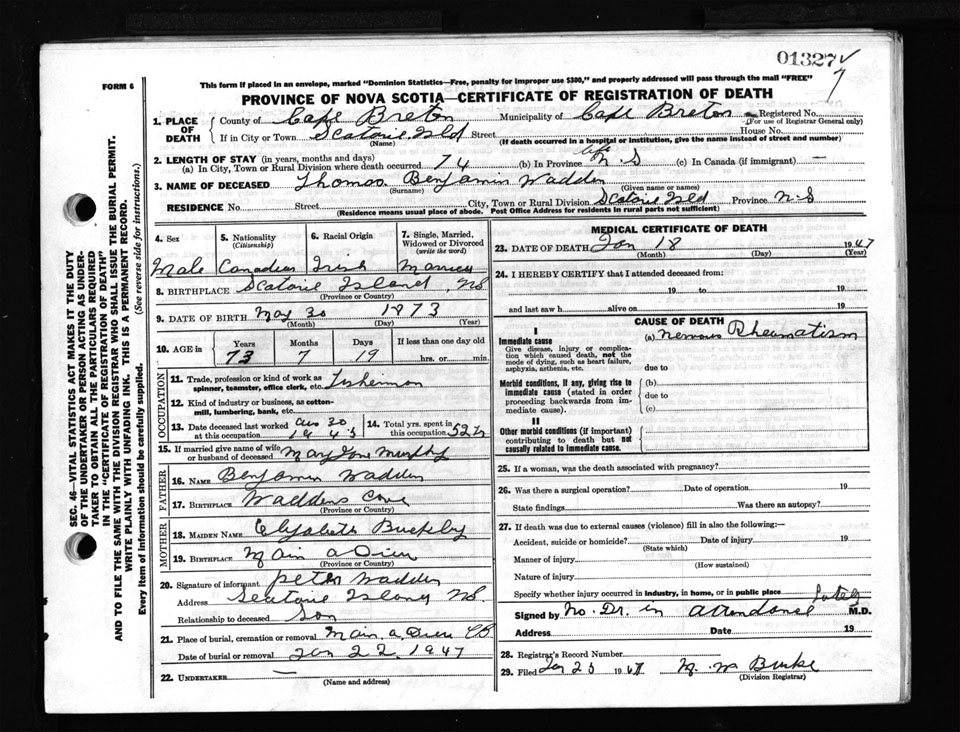 01327
7
FORM 6
This form if placed in an envelope, marked "Dominion Statistics—Free, penalty for improper use $300," and properly addressed will pass through the mail "FREE"
PROVINCE OF NOVA SCOTIA—CERTIFICATE OF REGISTRATION OF DEATH
1. PLACE OF DEATH County of Cape Breton Municipality of Cape Breton Registered No.
(For use of Registrar General only)
If in City or Town Scatarie Isld Street House No.
(Name) (If death occurred in a hospital or institution, give the name instead of street and number)
2. LENGTH OF STAY (in years, months and days)
(a) In City, Town or Rural Division where death occurred 74 (b) In Province life N.S (c) In Canada (if immigrant) —
3. NAME OF DECEASED Thomas Benjamin Wadden
(Surname) (Given name or names)
RESIDENCE No. Street City, Town or Rural Division Scatarie Isld Province N.S
(Residence means usual place of abode. Post Office Address for residents in rural parts not sufficient)
4. Sex 5. Nationality (Citizenship) 6. Racial Origin 7. Single, Married, Widowed or Divorced (write the word)
Male Canadian Irish Married
8. BIRTHPLACE Scatarie Island, NS
(Province or Country)
9. DATE OF BIRTH May 30 1873
(Month) (Day) (Year)
10. AGE in Years Months Days If less than one day old
73 7 19 hrs. or min.
OCCUPATION
11. Trade, profession or kind of work as spinner, teamster, office clerk, etc. Fisherman
12. Kind of industry or business, as cotton-mill, lumbering, bank, etc.
13. Date deceased last worked at this occupation 30 1945 14. Total yrs. spent in this occupation 52
15. If married give name of wife or husband of deceased Mary Jane Murphy
FATHER
16. NAME Benjamin Wadden
17. BIRTHPLACE Waddens Cove
(Province or Country)
MOTHER
18. MAIDEN NAME Elizabeth Buckley
19. BIRTHPLACE Main a Dieu
(Province or Country)
20. Signature of informant Peter Wadden
Address Scatarie Island NS.
Relationship to deceased Son
21. Place of burial, cremation or removal Main a Dieu CB.
Date of burial or removal Jan 22, 1947
22. UNDERTAKER —
(Name and address)
MEDICAL CERTIFICATE OF DEATH
23. DATE OF DEATH Jan 18 1947
(Month) (Day) (Year)
24. I HEREBY CERTIFY that I attended deceased from:
19 to 19
and last saw h alive on 19
CAUSE OF DEATH
I
Immediate cause (a) Nervous Rheumatism
Give disease, injury or complication which caused death, not the mode of dying, such as heart failure, asphyxia, asthenia, etc.
due to
Morbid conditions, if any, giving rise to immediate cause (stated in order proceeding backwards from immediate cause).
(b)
due to
(c)
II
Other morbid conditions (if important) contributing to death but not causally related to immediate cause.
25. If a woman, was the death associated with pregnancy?
26. Was there a surgical operation? Date of operation 19
State findings Was there an autopsy?
27. If death was due to external causes (violence) fill in also the following:—
Accident, suicide or homicide? Date of injury 19
(State which)
Manner of injury
(How sustained)
Nature of injury
Specify whether injury occurred in industry, in home, or in public place
Signed by No. Dr. in attendance lately M.D.
Address Date 19
28. Registrar's Record Number
29. Filed Jan 23 1947 M. W Burke
(Division Registrar)
SEC. 46—VITAL STATISTICS ACT MAKES IT THE DUTY
OF THE UNDERTAKER OR PERSON ACTING AS UNDER-
TAKER TO OBTAIN ALL THE PARTICULARS REQUIRED
IN THE "CERTIFICATE OF REGISTRATION OF DEATH"
AND TO FILE THE SAME WITH THE DIVISION REGISTRAR WHO SHALL ISSUE THE BURIAL PERMIT.
WRITE PLAINLY WITH UNFADING INK. THIS IS A PERMANENT RECORD.
Every item of information should be carefully supplied. (See reverse side for instructions.)